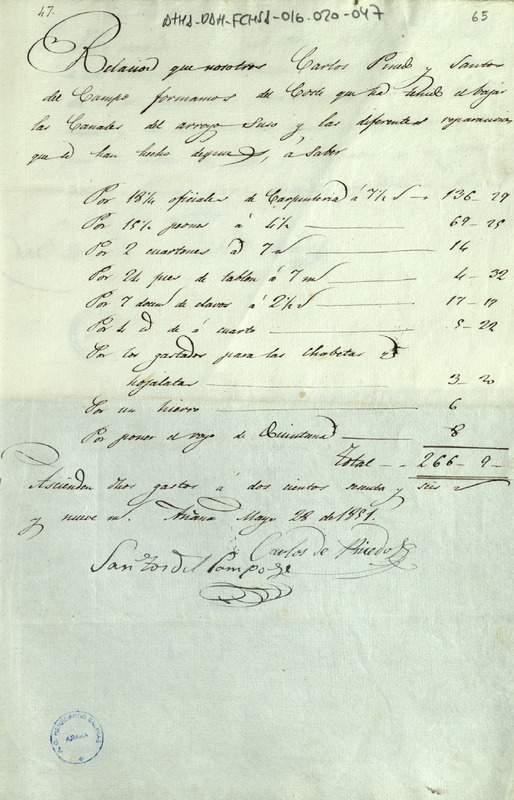 47.
ATHA-DAH-FCHSA-016.020-047
65
Relacion que nosotros Carlos Pinedo y Santos
del Campo formamos del Coste que ha tenido el bajar
las Canales del arroyo Suso y las diferentes reparaciones
que se han hecho, á Saber
Por 18 1/4 oficiales de Carpinteria á 7 1/2 136 - 29
Por 15 1/2 peones á 4 1/2 69 - 25
Por 2 cuartones á 7 14
Por 24 pies de tablon á 7 m 4 - 32
Por 7 docens de clavos á 2 1/2 17 - 17
Por 4 id de á cuarto 5 - 22
Por los gastados para las Chabetas y
hojalatas 3 - 20
Por un hierro 6
Por poner el royo de Quintana 8
Total 266 - 9
Ascienden dhos gastos á dos cientos sesenta y seis
y nueve m. Añana Mayo 28 de 1851.
Carlos de Pinedo
Santos del Campo